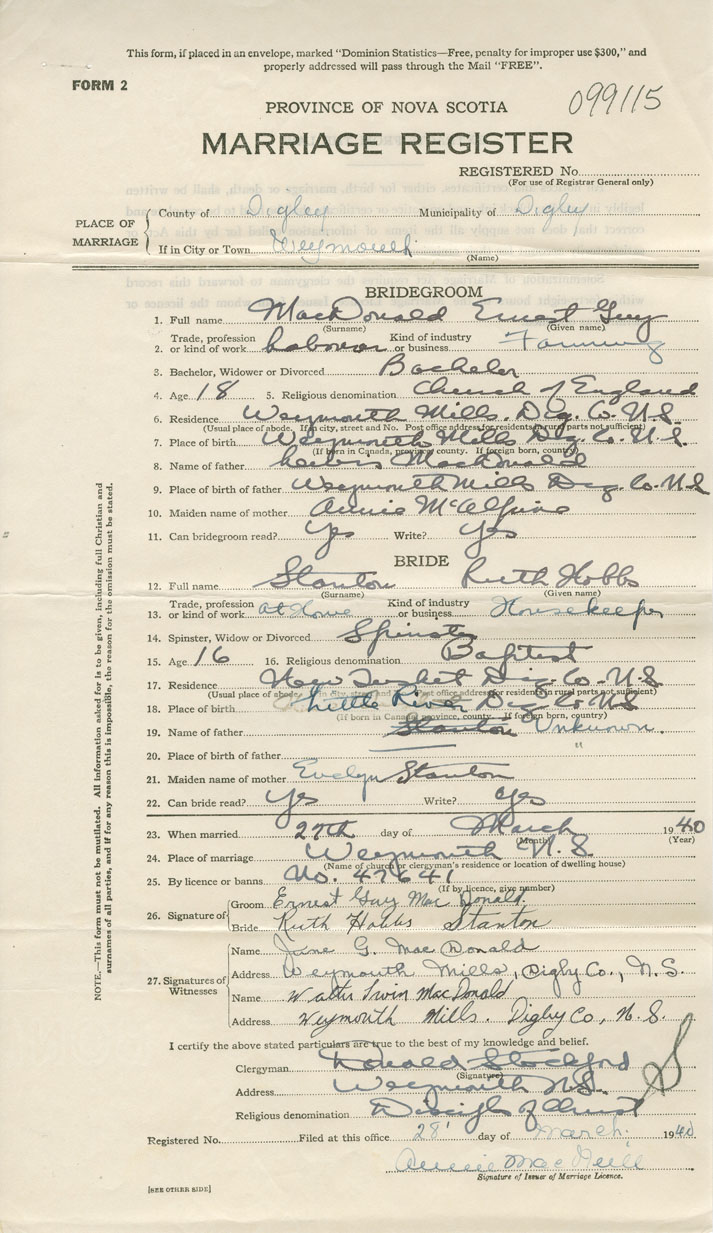 This form, if placed in an envelope, marked "Dominion Statistics—Free, penalty for improper use $300," and
properly addressed will pass through the Mail "FREE".
FORM 2
099115
PROVINCE OF NOVA SCOTIA
MARRIAGE REGISTER
REGISTERED No.
(For use of Registrar General only)
PLACE OF MARRIAGE
County of Digby Municipality of Digby
If in City or Town Weymouth
(Name)
BRIDEGROOM
1. Full name MacDonald Ernest Guy
(Surname) (Given name)
2. Trade, profession or kind of work Laborer Kind of industry or business Farming
3. Bachelor, Widower or Divorced Bachelor
4. Age 18 5. Religious denomination Church of England
6. Residence Weymouth Mills. Dig. Co. N.S.
(Usual place of abode. If in city, street and No. Post office address for residents in rural parts not sufficient)
7. Place of birth Weymouth Mills Dig. Co. N.S.
(If born in Canada, province, county. If foreign born, country)
8. Name of father Lewis MacDonald
9. Place of birth of father Weymouth Mills Dig. Co. N.S
10. Maiden name of mother Annie McAlpine
11. Can bridegroom read? Yes Write? Yes
BRIDE
12. Full name Stanton Ruth Hobbs
(Surname) (Given name)
13. Trade, profession or kind of work At Home Kind of industry or business Housekeeper
14. Spinster, Widow or Divorced Spinster
15. Age 16 16. Religious denomination Baptist
17. Residence New Tusket Dig. Co. N.S
(Usual place of abode. If in city, street and No. Post office address for residents in rural parts not sufficient)
18. Place of birth Little River Dig Co N.S
(If born in Canada, province, county. If foreign born, country)
19. Name of father Stanton Unknown.
20. Place of birth of father "
21. Maiden name of mother Evelyn Stanton
22. Can bride read? Yes Write? Yes
23. When married 27th day of March 1940
(Month) (Year)
24. Place of marriage Weymouth N.S.
(Name of church or clergyman's residence or location of dwelling house)
25. By licence or banns No. 47641
(If by licence, give number)
26. Signature of
Groom Ernest Guy Mac Donald.
Bride Ruth Hobbs Stanton
27. Signatures of Witnesses
Name June G. Mac Donald
Address Weymouth Mills, Digby Co., N.S.
Name Walter Irvin Mac Donald
Address Weymouth Mills. Digby Co, N.S.
I certify the above stated particulars are true to the best of my knowledge and belief.
Clergyman Donald Stockford
(Signature)
Address Weymouth N.S.
Religious denomination Disciple of Christ
Registered No. Filed at this office 28' day of March. 1940
Annie MacNeill
Signature of Issuer of Marriage Licence.
[SEE OTHER SIDE]
NOTE.—This form must not be mutilated. All information asked for is to be given, including full Christian and
surnames of all parties, and if for any reason this is impossible, the reason for the omission must be stated.